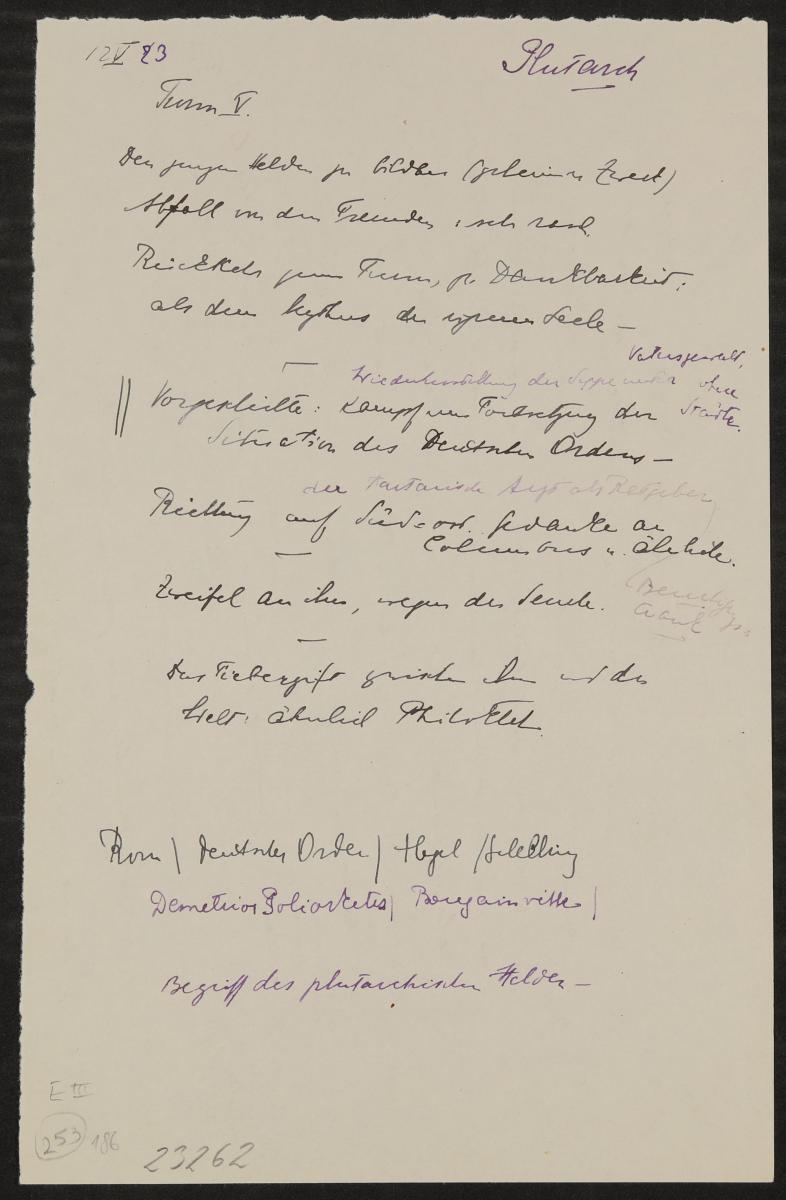 12 V 23
Plutarch
Turm V.
Den jungen Helden zu bilden (geheimer Zweck)
Abfall von den Freunden, sehr rasch.
Rückkehr zum Turm, zu Dankbarkeit;
als dem Mythus der eigenen Seele –
Vatersgewalt,
Wiederherstellung der Sippe unter ohne
Vorgeschichte: Kampf um Fortsetzung der Städte.
Situation des Deutschen Ordens –
der tartarische Arzt als Ratgeber
Richtung auf Süd-ost. Gedanke an
Columbus u. ähnliche.
Zweifel an ihm, wegen der Seuche.
Das Fiebergift zwischen ihm und der
Welt: ähnlich Philoktet.
Rom | Deutscher Orden | Hegel / Schelling
Demetrios Poliorketes | Bougainville |
Begriff des plutarchischen Helden –
E III
253 186
23262